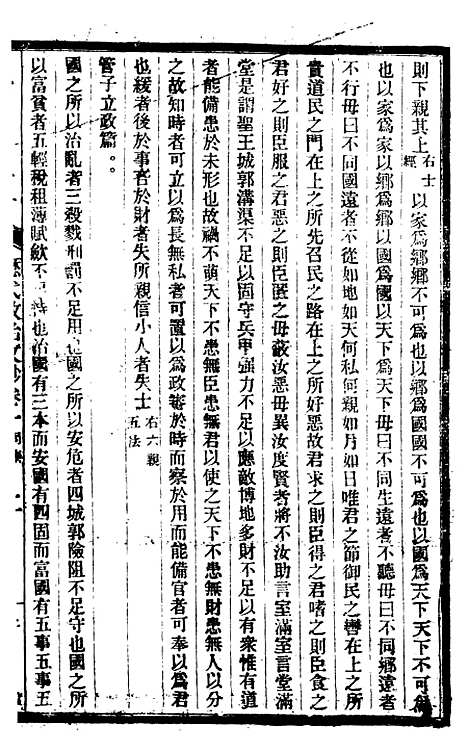 則下親其上右士經　以家爲鄉鄉不可爲也以鄉爲國國不可爲也以國爲天下天下不可爲
也以家爲家以鄉爲鄉以國爲國以天下爲天下毋曰不同生遠者不聽毋曰不同鄉遠者
不行毋曰不同國遠者不從如地如天何私何親如月如日唯君之節御民之轡在上之所
貴道民之門在上之所先召民之路在上之所好惡故君求之則臣得之君嗜之則臣食之
君好之則臣服之君惡之則臣匿之毋蔽汝惡毋異汝度賢者將不汝助言室滿室言堂滿
堂是謂聖王城郭溝渠不足以固守兵甲强力不足以應敵博地多財不足以有衆惟有道
者能備患於未形也故禍不萌天下不患無臣患無君以使之天下不患無財患無人以分
之故知時者可立以爲長無私者可置以爲政審於時而察於用而能備官者可奉以爲君
也緩者後於事吝於財者失所親信小人者失士右六親五法
管子立政篇
國之所以治亂者三殺戮刑罰不足用也國之所以安危者四城郭險阻不足守也國之所
以富貧者五輕稅租薄賦斂不足恃也治國有三本而安國有四固而富國有五事五事五